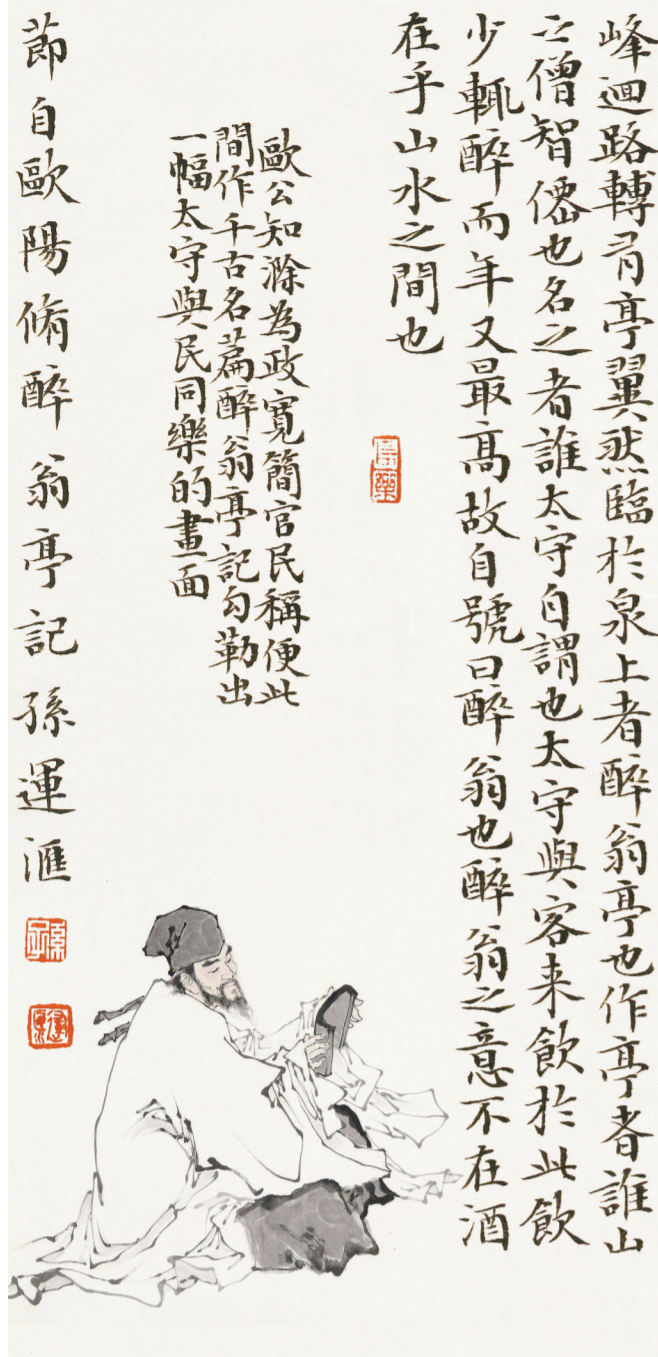 峰迴路轉有亭翼然臨於泉上者醉翁亭也作亭者誰山
之僧智僊也名之者誰太守自謂也太守與客来飲於此飲
少輒醉而年又最高故自號曰醉翁也醉翁之意不在酒
在乎山水之間也
歐公知滁為政寬簡官民稱便此
間作千古名篇醉翁亭記勾勒出
一幅太守與民同樂的畫面
節自歐陽脩醉翁亭記孫運滙